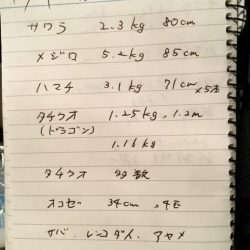 サワラ 2.3kg 80cm
メジロ 5.2kg 85cm
ハマチ 3.1kg 71cm ×5本
タチウオ 1.25kg、1.2m
(ドラゴン)
1.16kg
タチウオ 多数
オコゼ 34cm ×4匹
サバ、レンコダイ、アヤメ